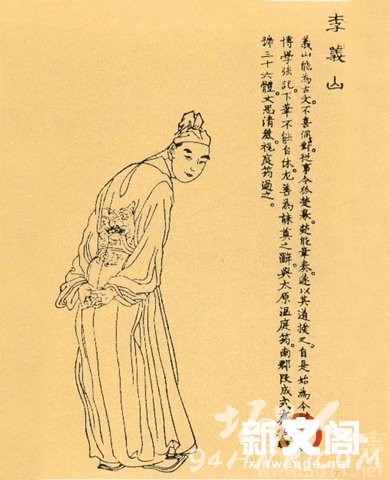 李義山
義山能為古文。不喜偶對。從事令狐楚幕。楚能章奏。遂以其道授之。自是始為今
博學強記。下筆不能自休。尤善為誄奠之辭。與太原溫庭筠。南郡段成式
號三十六體。文思清麗。視庭筠過之。
新文阁
xinwenge.net